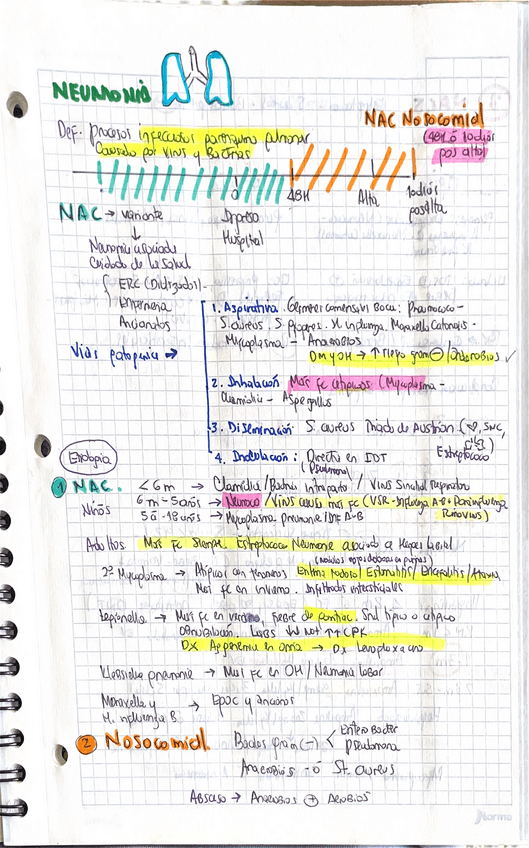 NEUMONIA
NAC Nosocomial
Def: procesos infecciosos parenquima pulmonar
Causado por Virus y Bacterias
(48H ó 10 días
pos alta)
48H
Alta
10 días
pos alta
NAC → variante
Ingreso
Hospital
Neumonia asociada
Cuidado de la Salud
ERC (Dializados)
Enfermeria
Ancianatos
Vias patogenia →
1. Aspirativa. Germenes comensales Boca: Pneumococo -
S. aureus. S. Pyogenes. H. influenza. Moraxella Catarralis -
Mycoplasma - Anaerobios
DM y OH → ↑ riesgo gram ⊖ / anaerobios ✓
2. Inhalación Mas fc atipicos (Mycoplasma -
Clamidia - Aspergillus
3. Diseminación: S. aureus Triada de Austrian (♡, SNC,
Estreptococo
4. Inoculación: Directa en IOT
(Pseudomona)
Etiologia
1 NAC.
Niños
< 6 m → Clamidia / Bacterias intraparto / Virus Sincitial Respiratorio
6 m - 5 años → Neumoco / Virus causa mas fc (VSR - Influenza A-B + Parainfluenza
Rinovirus)
5 a - 18 años → Mycoplasma pneumonie / INF A-B
Adultos. Mas Fc Siempre. Estreptococo Neumonie asociado a Herpes labial
2º Mycoplasma → Atipicos con fenomenos Eritema nodoso / Estomatitis / Encefalitis / Ataxia
Mas fc en invierno. Infiltrados intersticiales
Legionella → Mas fc en verano, fiebre de pontiac. Snd tipico o atipico
obnubilación. Labs ↓Na ↑↑CPK
DX Ag penemia en orina → Dx Levofloxacino
Klebsiella pneumonie → Mas Fc en OH / Neumonia lobar
Moraxella y
H. influenza B. → Epoc y ancianos
2 Nosocomial.
Bacilos gram (-) < Entero bacter
Pseudomona
Anaerobios - ó St. aureus
Absceso → Anaerobios ⊕ Aerobios
Norma